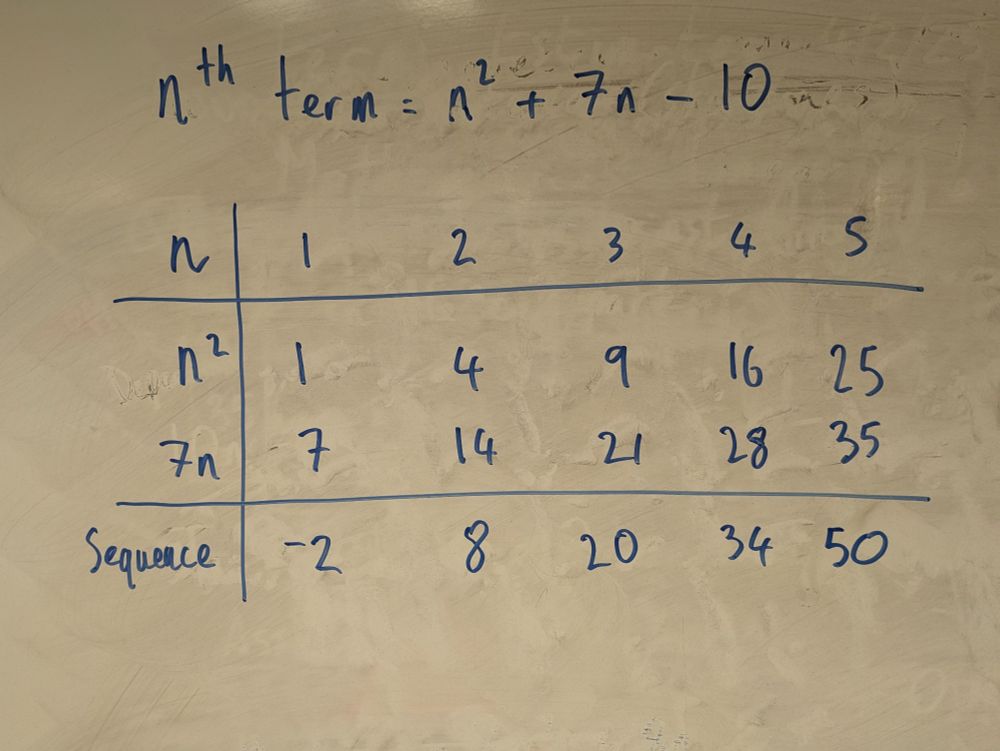 nth term = n² + 7n - 10
n 1 2 3 4 5
n² 1 4 9 16 25
7n 7 14 21 28 35
Sequence -2 8 20 34 50